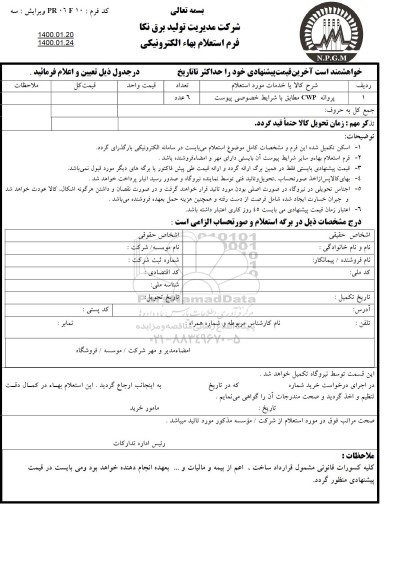 بسمه تعالی
کد فرم : PR ۰۶ F ۱۰ ویرایش : سه
شرکت مدیریت تولید برق نکا
فرم استعلام بهاء الکترونیکی
1400.01.20
1400.01.24
خواهشمند است آخرین قیمت پیشنهادی خود را حداکثر تا تاریخ درجدول ذیل تعیین و اعلام فرمائید .
ردیف شرح کالا یا خدمات مورد استعلام تعداد قیمت واحد قیمت کل ملاحظات
۱ پروانه CWP مطابق با شرایط خصوصی پیوست ۶ عدد
جمع کل به حروف:
تذکر مهم : زمان تحویل کالا حتماً قید گردد.
توضیحات:
۱- اسکن تکمیل شده این فرم و مشخصات کامل موضوع استعلام می‌بایست در سامانه الکترونیکی بارگذاری گردد.
۲- فرم استعلام بهاء و سایر شرایط پیوست آن بایستی دارای مهر و امضاء فروشنده باشد .
۳- قیمت پیشنهادی بایستی فقط در همین برگ ارائه گردد و ارائه قیمت طی پیش فاکتور یا برگه های دیگر مورد قبول نمی‌باشد.
۴- بهای کالا پس از اخذ صورتحساب ،تحویل و تائید فنی توسط نماینده نیروگاه و صدور رسید انبار پرداخت خواهد شد .
۵- اجناس تحویلی در نیروگاه در صورت اصلی بودن مورد تائید قرار خواهند گرفت و در صورت نقصان و داشتن هرگونه اشکال، کالا عودت خواهد شد
و جبران خسارت ایجاد شده شامل فرصت از دست رفته و همچنین هزینه حمل بعهده فروشنده می‌باشد .
۶- اعتبار زمان قیمت پیشنهادی می بایست ۴۵ روز کاری اعتبار داشته باشد.
درج مشخصات ذیل در برگه استعلام و صورتحساب الزامی است :
اشخاص حقیقی اشخاص حقوقی
نام و نام خانوادگی : نام موسسه/ شرکت :
نام فروشنده / پیمانکار: شماره ثبت شرکت :
کد ملی: کد اقتصادی:
شناسه ملی:
تاریخ تکمیل : تاریخ تحویل:
آدرس: کد پستی :
تلفن : نام کارشناس مربوطه و شماره همراه : نمابر :
ParsNamadData
۰۲۱-۸۸۳۴۹۶۷۰-۵
امضاءمدیر و مهر شرکت / موسسه / فروشگاه
این قسمت توسط نیروگاه تکمیل خواهد شد .
در اجرای درخواست خرید شماره که در تاریخ به اینجانب ارجاع گردید . این استعلام بهاء در کمال دقت
تنظیم و اخذ گردید و صحت مندرجات آن را گواهی می‌نمایم .
تاریخ : مامور خرید
صحت مراتب فوق در مورد استعلام از شرکت / مؤسسه مذکور مورد تائید میباشد .
رئیس اداره تدارکات
ملاحظات :
کلیه کسورات قانونی مشمول قرارداد ساخت ، اعم از بیمه و مالیات و ... بعهده انجام دهنده خواهد بود ومی بایست در قیمت
پیشنهادی منظور گردد.